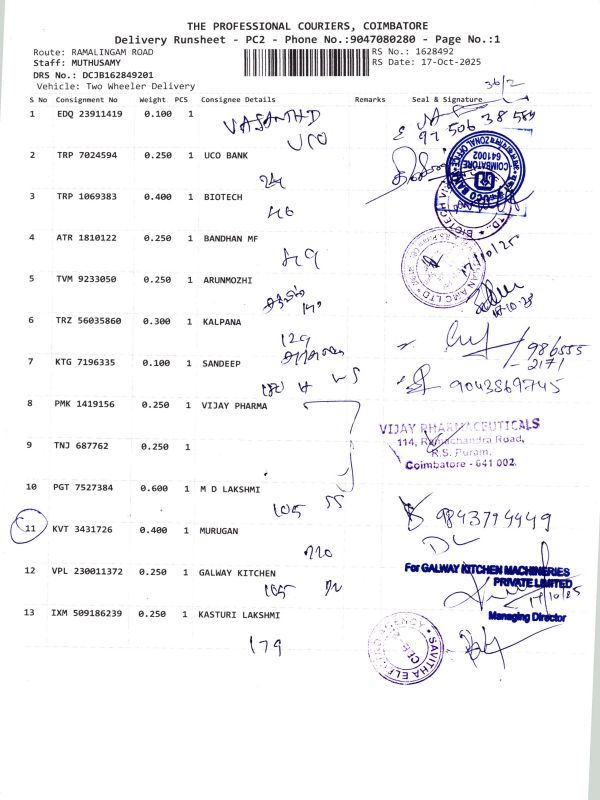 THE PROFESSIONAL COURIERS, COIMBATORE
Delivery Runsheet - PC2 - Phone No.:9047080280 - Page No.:1
Route: RAMALINGAM ROAD
RS No.: 1628492
Staff: MUTHUSAMY
RS Date: 17-Oct-2025
DRS No.: DCJB162849201
Vehicle: Two Wheeler Delivery
36/2
S No Consignment No Weight PCS Consignee Details Remarks Seal & Signature
1 EDQ 23911419 0.100 1 VASANTHD
UCO
97506 38589
2 TRP 7024594 0.250 1 UCO BANK
24
ZONAL OFFICE
COIMBATORE
641002
UCO BANK
3 TRP 1069383 0.400 1 BIOTECH
46
4 ATR 1810122 0.250 1 BANDHAN MF
49
17/10/25
5 TVM 9233050 0.250 1 ARUNMOZHI
17-10-25
6 TRZ 56035860 0.300 1 KALPANA
129
986555
-2171
7 KTG 7196335 0.100 1 SANDEEP
9043869745
8 PMK 1419156 0.250 1 VIJAY PHARMA
VIJAY PHARMACEUTICALS
114, Ramachandra Road,
R.S. Puram,
Coimbatore - 641 002.
9 TNJ 687762 0.250 1
10 PGT 7527384 0.600 1 M D LAKSHMI
105
9843794449
11 KVT 3431726 0.400 1 MURUGAN
220
12 VPL 230011372 0.250 1 GALWAY KITCHEN
105
For GALWAY KITCHEN MACHINERIES
PRIVATE LIMITED
17/10/25
Managing Director
13 IXM 509186239 0.250 1 KASTURI LAKSHMI
179